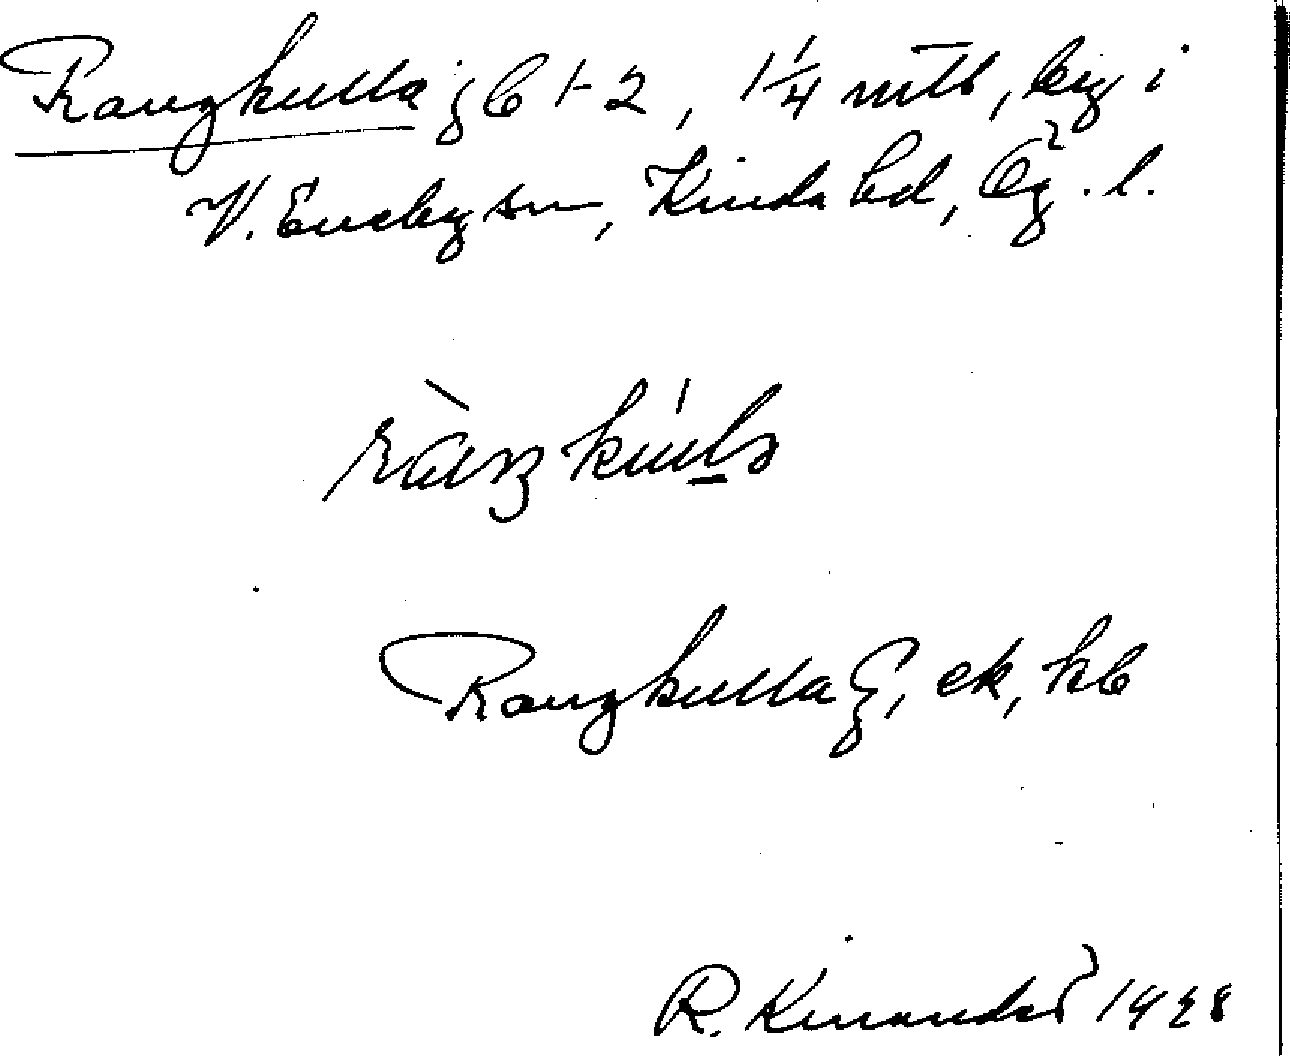 Rangkulla gb 1-2, 1 1/4 mtl, by i
V. Eneby sn, Kinda hd, Ög. l.
Rangkulla G, ek, kb
R. Kinander 1928